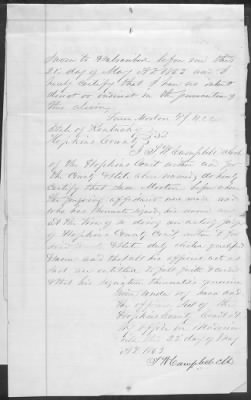 Sworn to & subscribed before me this
22 day of May AD 1863 and I
hereby certify that I have no interest
direct or indirect in the prosecution of
this claim
Sam Morton P J H C C
State of Kentucky
Hopkins County
I J W Campbell Clerk
of the Hopkins County Court within and for
the County & State above named do hereby
Certify that Sam Morton before whom
the foregoing affidavit was made and
who has thereunto signed his name was
at the time of so doing an acting Judge
of Hopkins County Court within & for
said County & State duly elected qualified
& sworn and that all his official acts as
such are entitled to full faith & credit
& that his signature thereunto is genuine
Given under my hand and
the official seal of the
Hopkins County Court at
my office in Madison
ville this 22 day of May
AD 1863
J W Campbell Clk